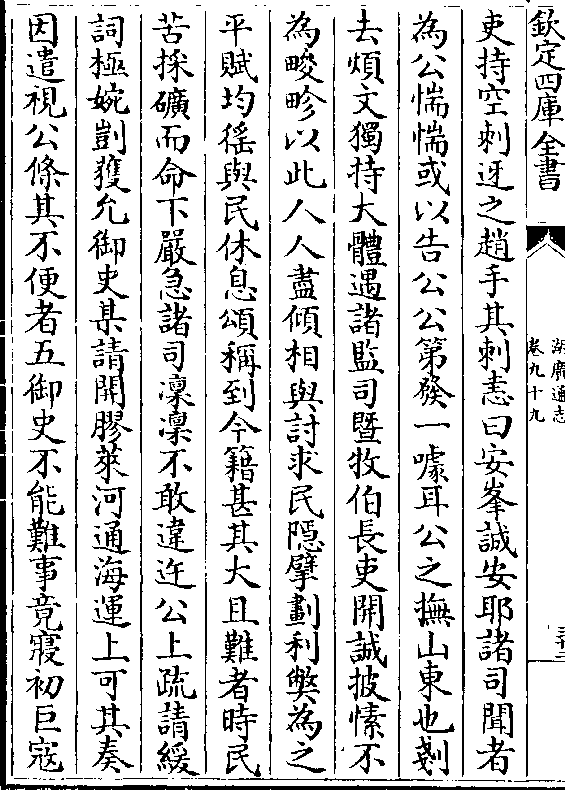 欽定四庫全書
湖廣通志
卷九十九
吏持空刺迓之趙手其刺恚曰安峯誠安耶諸司聞者
為公惴惴或以告公公第發一噱耳公之撫山東也剗
去煩文獨持大體遇諸監司暨牧伯長吏開誠披愫不
為畯畛以此人人盡傾相與討求民隠擘劃利弊為之
平賦均徭與民休息頌稱到今籍甚其大且難者時民
苦採礦而命下嚴急諸司凜凜不敢違迕公上疏請緩
詞極婉剴獲允御史某請開膠萊河通海運上可其奏
因遣視公條其不便者五御史不能難事竟寢初巨寇